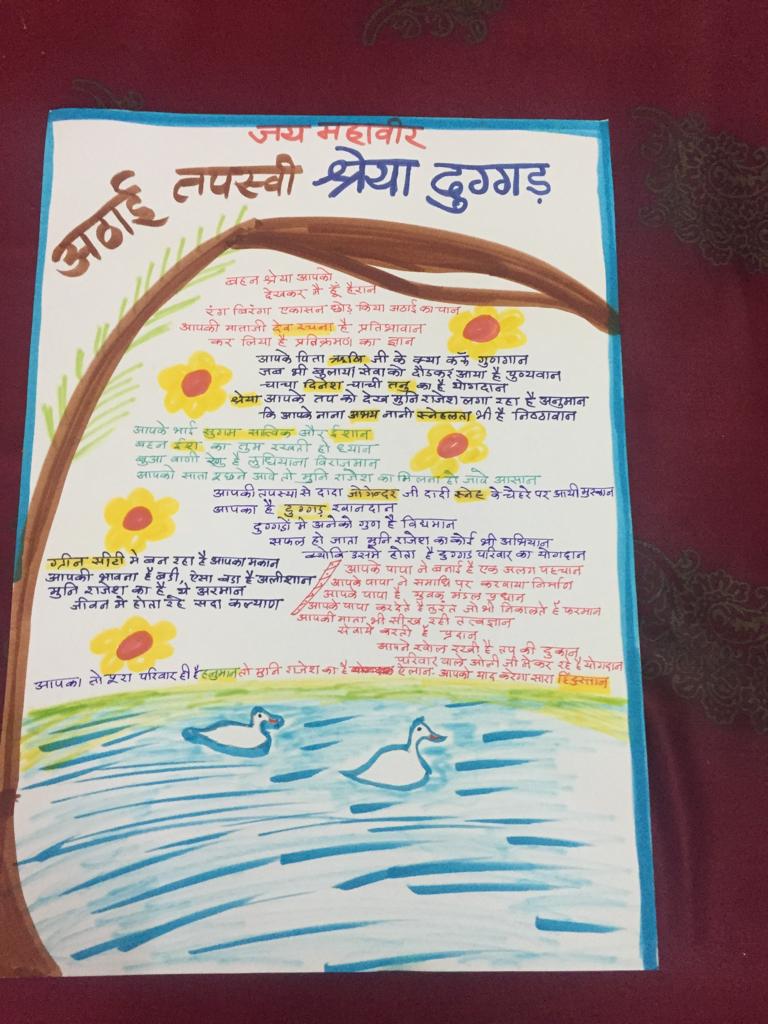 जय महावीर
अठाई तपस्वी श्रेया दुग्गड़
बहन श्रेया आपको
देखकर मै हूँ हैरान
रंग बिरंगा एकासन छोड़ किया अठाई का पान
आपकी माताजी देव रचना है प्रतिभावान
कर लिया है प्रतिक्रमण का ज्ञान
आपके पिता ऋषि जी के क्या करूँ गुणगान
जब भी बुलाया सेवा को दौडकर आया है पुण्यवान
चाचा दिनेश चाची तनु का है योगदान
श्रेया आपके तप को देख मुनि राजेश लगा रहा है अनुमान
कि आपके नाना अभय नानी स्नेहलता भी है निठठावान
आपके भाई सुगम सात्विक और ईशान
बहन ईशा का तुम रखती हो ध्यान
बुआ वाणी रेणु है लुधियाना विराजमान
आपको साता पूछने आवे तो मुनि राजेश का मिलना हो जावे आसान
आपकी तपस्या से दादा जोगेन्दर जी दादी स्नेह के चेहरे पर आयी मुस्कान
आपका है दुग्गड़ खानदान
दुग्गडों मे अनेको गुण है विद्यमान
सफल हो जाता मुनि राजेश का कोई भी अभियान
क्योंकि उसमे होता है दुग्गड़ परिवार का योगदान
ग्रीन सीटी मे बन रहा है आपका मकान
आपकी भावना है बडी, ऐसा बडा है अलीशान
मुनि राजेश का है ये अरमान
जीवन मे होता रहे सदा कल्याण
आपके पापा ने बनाई है एक अलग पहचान
आपके पापा ने समाधि पर करवाया निर्माण
आपके पापा है युवक मंडल प्रधान
आपके पापा कर देते है तुरंत जो भी निकालते है फरमान
आपकी माता भी सीख रही तत्वज्ञान
सेवाये करती है प्रदान
आपने खोल रखी है तप की दुकान
परिवार वाले ओली जी मे कर रहे है योगदान
आपका तो पूरा परिवार ही है हनुमान तो मुनि राजेश का है ऐलान- आपको याद करेगा सारा हिंदुस्तान